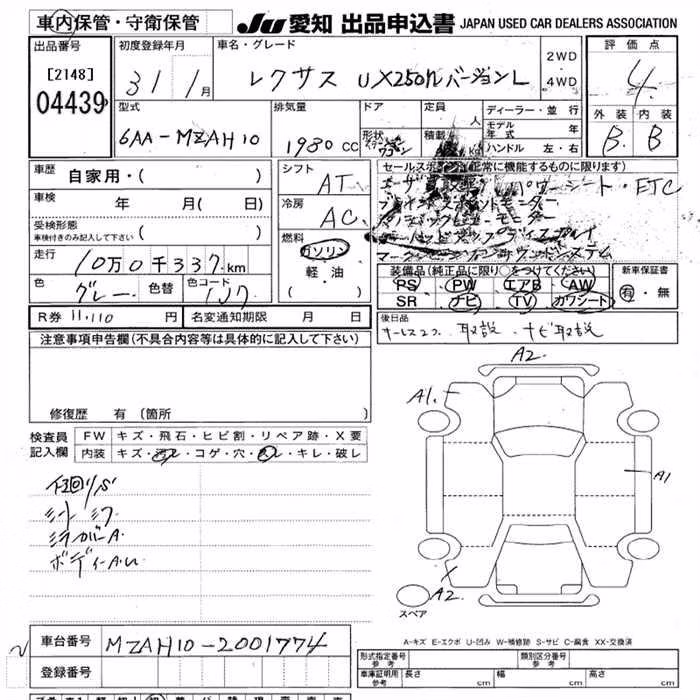 車内保管・守衛保管
JU 愛知 出品申込書 JAPAN USED CAR DEALERS ASSOCIATION
出品番号 初度登録年月 車名・グレード 評価点
[2148]
04439
31 1月
レクサス UX250h バージョンL
2WD
4WD
4
型式 排気量 ドア 定員 ディーラー・並行 外装 内装
6AA-MZAH10 1980 cc
形状 ワゴン 積載 人 モデル年式 年
kg ハンドル 左・右
B B
車歴 自家用・( )
車検 年 月( 日)
受検形態
車検付きのみ記入して下さい ( )
走行 10万0千337km
色 グレー 色替 色コード 1J7
シフト AT
冷房 AC
燃料 ガソリン
軽・油
( )
セールスポイント(正常に機能するものに限ります)
パワーシート・ETC
ブラインドスポットモニター
パノラミックビューモニター
ヘッドアップディスプレイ
サウンドシステム
装備品(純正品に限り○をつけてください)
PS PW エアB AW
SR ナビ TV カワシート
新車保証書
有・無
R券 11,110 円 名変通知期限 月 日
後日品
取説 ナビ取説
注意事項申告欄(不具合内容等は具体的に記入して下さい)
修復歴 有(箇所 )
検査員 FW キズ・飛石・ヒビ割・リペア跡・X要
記入欄 内装 キズ・汚レ・コゲ・穴・スレ・キレ・破レ
ボディーA.U
A2.
A1.
A1
A2.
スペア
A-キズ E-エクボ U-凹み W-補修跡 S-サビ C-腐食 XX-交換済
車台番号 MZAH10-2001774
登録番号
形式指定番号 参考 類別区分番号 参考
車庫証明用 参考 長さ cm 幅 cm 高さ cm